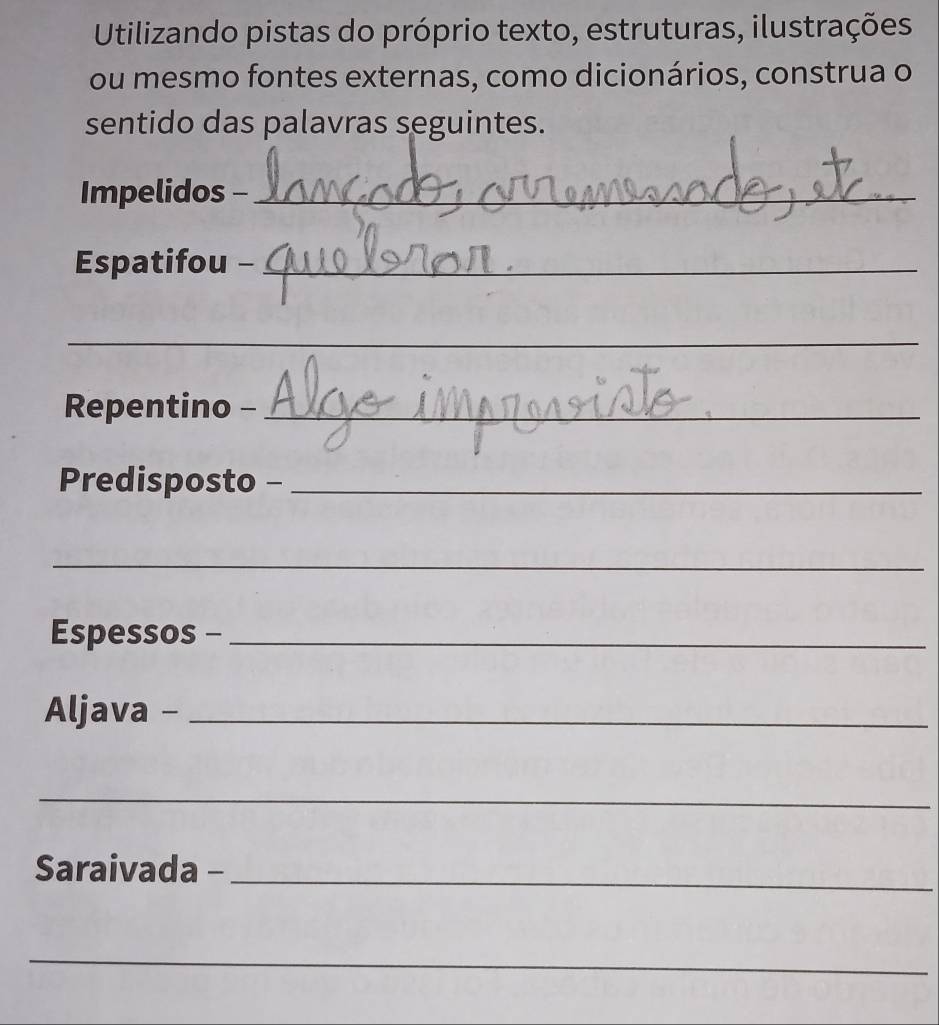 Utilizando pistas do próprio texto, estruturas, ilustrações
ou mesmo fontes externas, como dicionários, construa o
sentido das palavras seguintes.
Impelidos - lançado, arremessado, etc...
Espatifou - quebrar.
Repentino - Algo imprevisto.
Predisposto -
Espessos -
Aljava -
Saraivada -